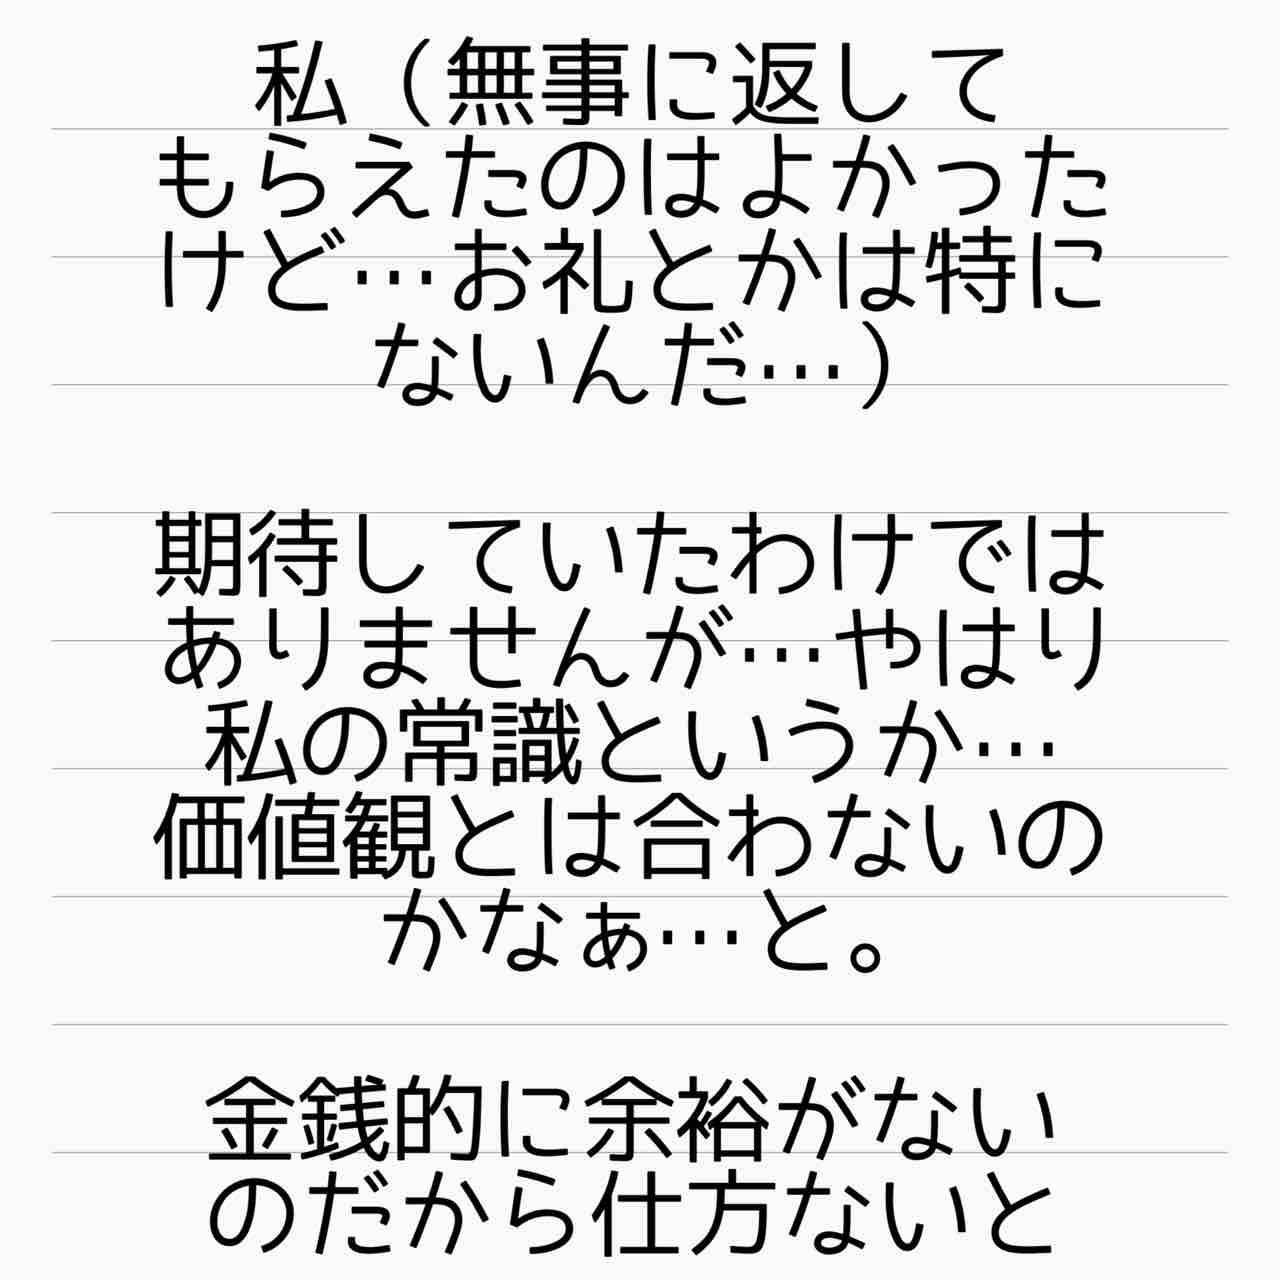 私（無事に返して
もらえたのはよかった
けど…お礼とかは特に
ないんだ…）
期待していたわけでは
ありませんが…やはり
私の常識というか…
価値観とは合わないの
かなぁ…と。
金銭的に余裕がない
のだから仕方ないと